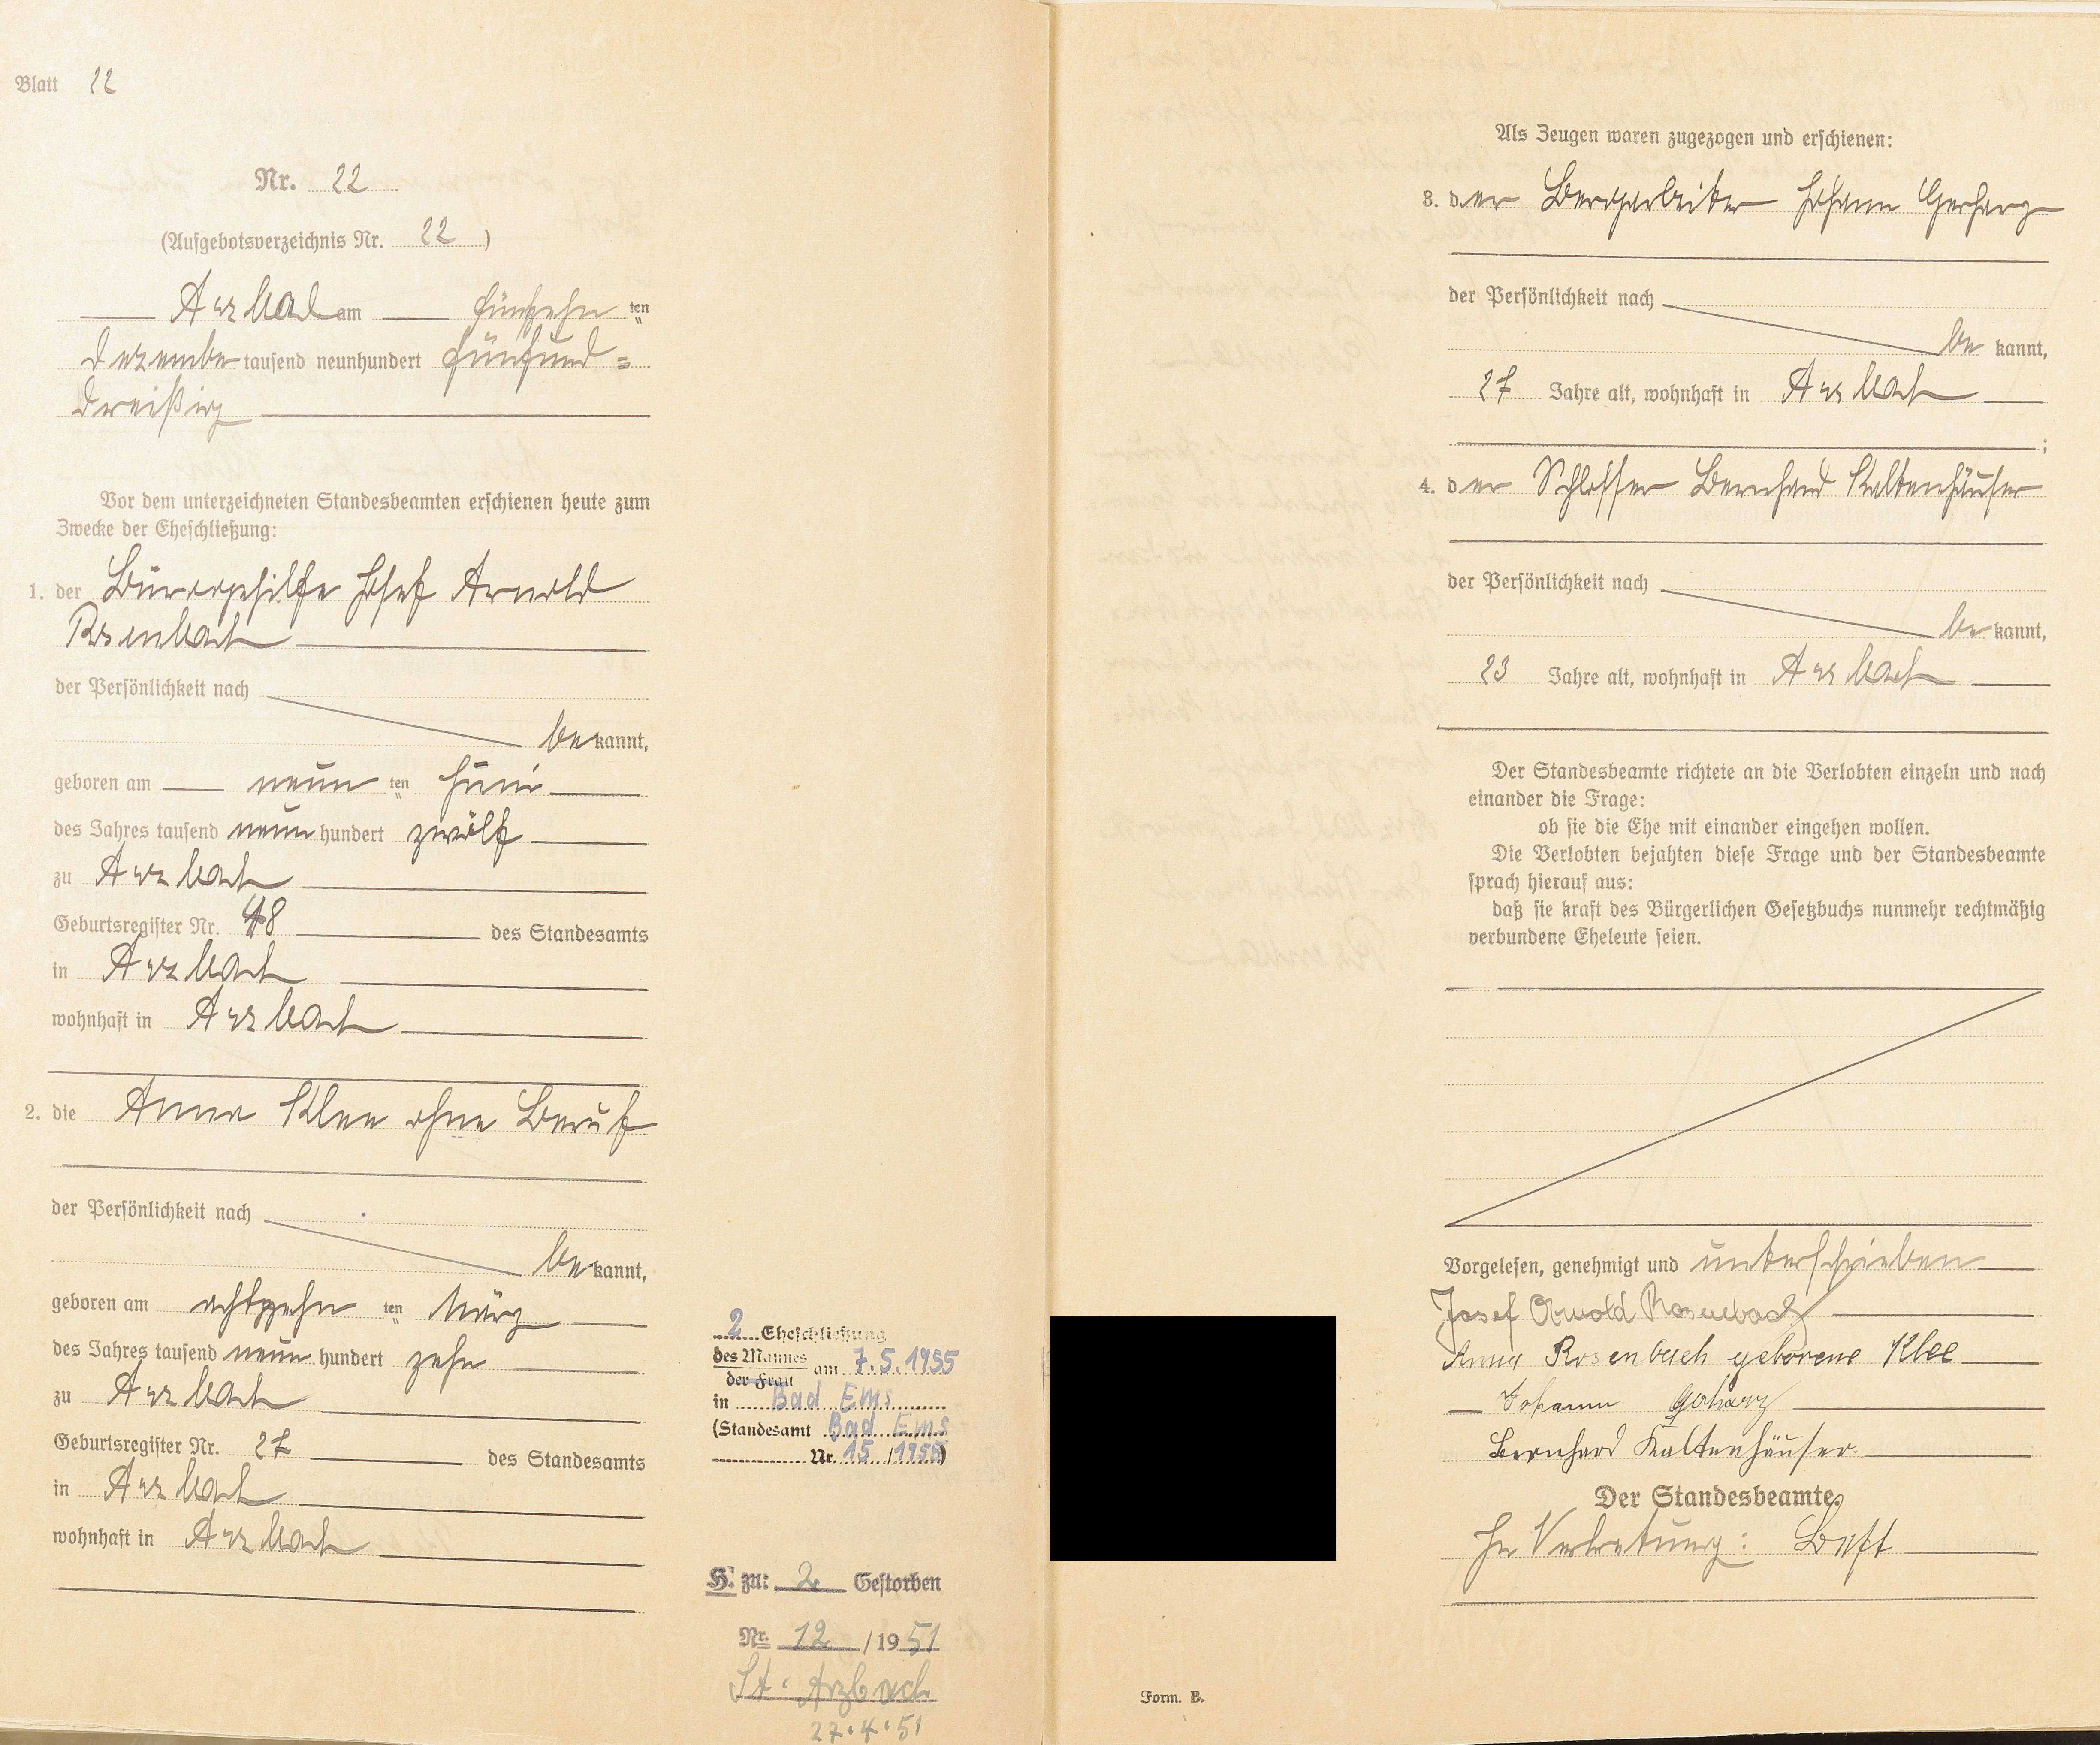 Blatt 22
Nr. 22
(Aufgebotsverzeichnis Nr. 22 )
Arzbach am fünfzehn ten
Dezember tausend neunhundert fünfund=
dreißig
Vor dem unterzeichneten Standesbeamten erschienen heute zum
Zwecke der Eheschließung:
1. der Bürogehilfe Josef Arnold
Rosenbach
der Persönlichkeit nach
be kannt,
geboren am neun ten Juni
des Jahres tausend neun hundert zwölf
zu Arzbach
Geburtsregister Nr. 48 des Standesamts
in Arzbach
wohnhaft in Arzbach
2. die Anna Klee ohne Beruf
der Persönlichkeit nach
be kannt,
geboren am achtzehn ten März
des Jahres tausend neun hundert zehn
zu Arzbach
Geburtsregister Nr. 27 des Standesamts
in Arzbach
wohnhaft in Arzbach
2 Eheschließung
des Mannes am 7.5.1955
der Frau
in Bad Ems
(Standesamt Bad Ems
Nr. 15 /1955)
H. zu: 2 Gestorben
Nr. 12 /1951
St. Arzbach
27.4.51
Als Zeugen waren zugezogen und erschienen:
3. der Bergarbeiter Johann Gerharz
der Persönlichkeit nach
be kannt,
27 Jahre alt, wohnhaft in Arzbach
;
4. der Schlosser Bernhard Kaltenhäuser
der Persönlichkeit nach
be kannt,
23 Jahre alt, wohnhaft in Arzbach
Der Standesbeamte richtete an die Verlobten einzeln und nach
einander die Frage:
ob sie die Ehe mit einander eingehen wollen.
Die Verlobten bejahten diese Frage und der Standesbeamte
sprach hierauf aus:
daß sie kraft des Bürgerlichen Gesetzbuchs nunmehr rechtmäßig
verbundene Eheleute seien.
Vorgelesen, genehmigt und unterschrieben
Josef Arnold Rosenbach
Anna Rosenbach geborene Klee
Johann Gerharz
Bernhard Kaltenhäuser.
Der Standesbeamte.
In Vertretung:
Form. B.